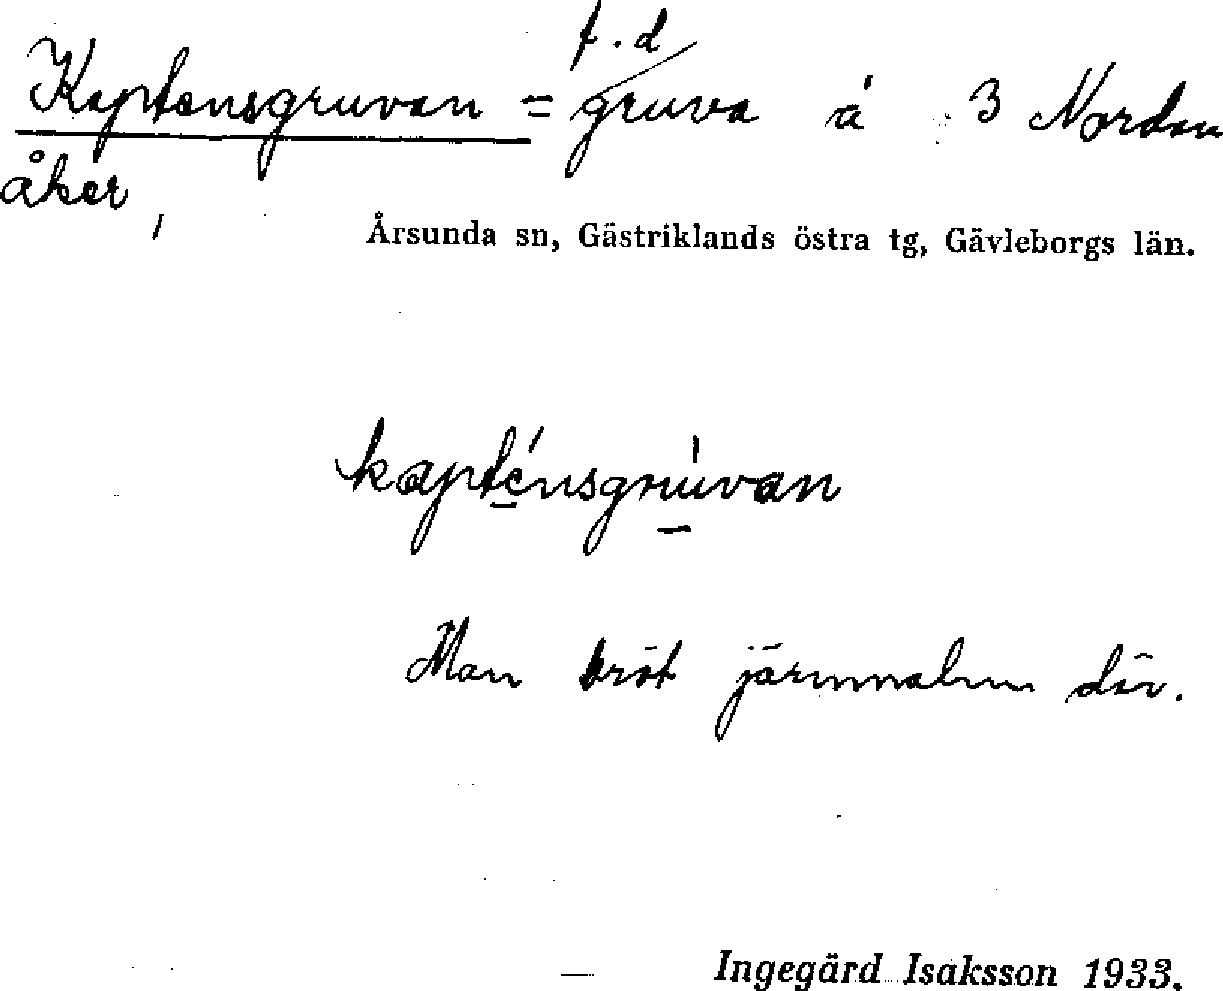 f.d
Kaptensgruvan = gruva å 3 Nordan
åker,
Årsunda sn, Gästriklands östra tg, Gävleborgs län.
kapténsgrúvan
Man bröt järnmalm där.
Ingegärd Isaksson 1933.